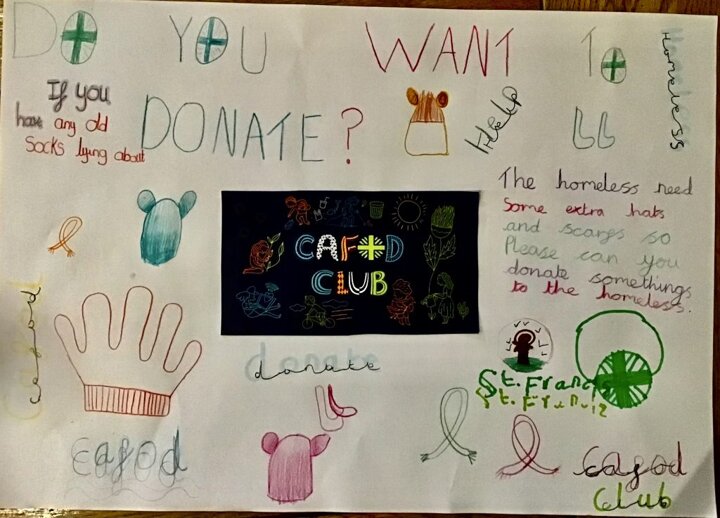 DO YOU WANT TO
DONATE?
Homeless
If you
have any old
socks lying about
Help
The homeless need
some extra hats
and scarfs so
Please can you
donate somethings
to the homeless.
CAFOD
CLUB
cafod
donate
St. Francis
cafod
cafod
club